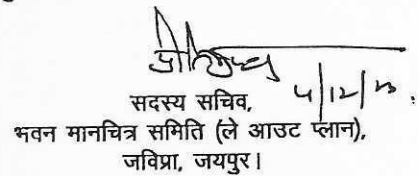 4/12/23
सदस्य सचिव,
भवन मानचित्र समिति (ले आउट प्लान),
जविप्रा, जयपुर।